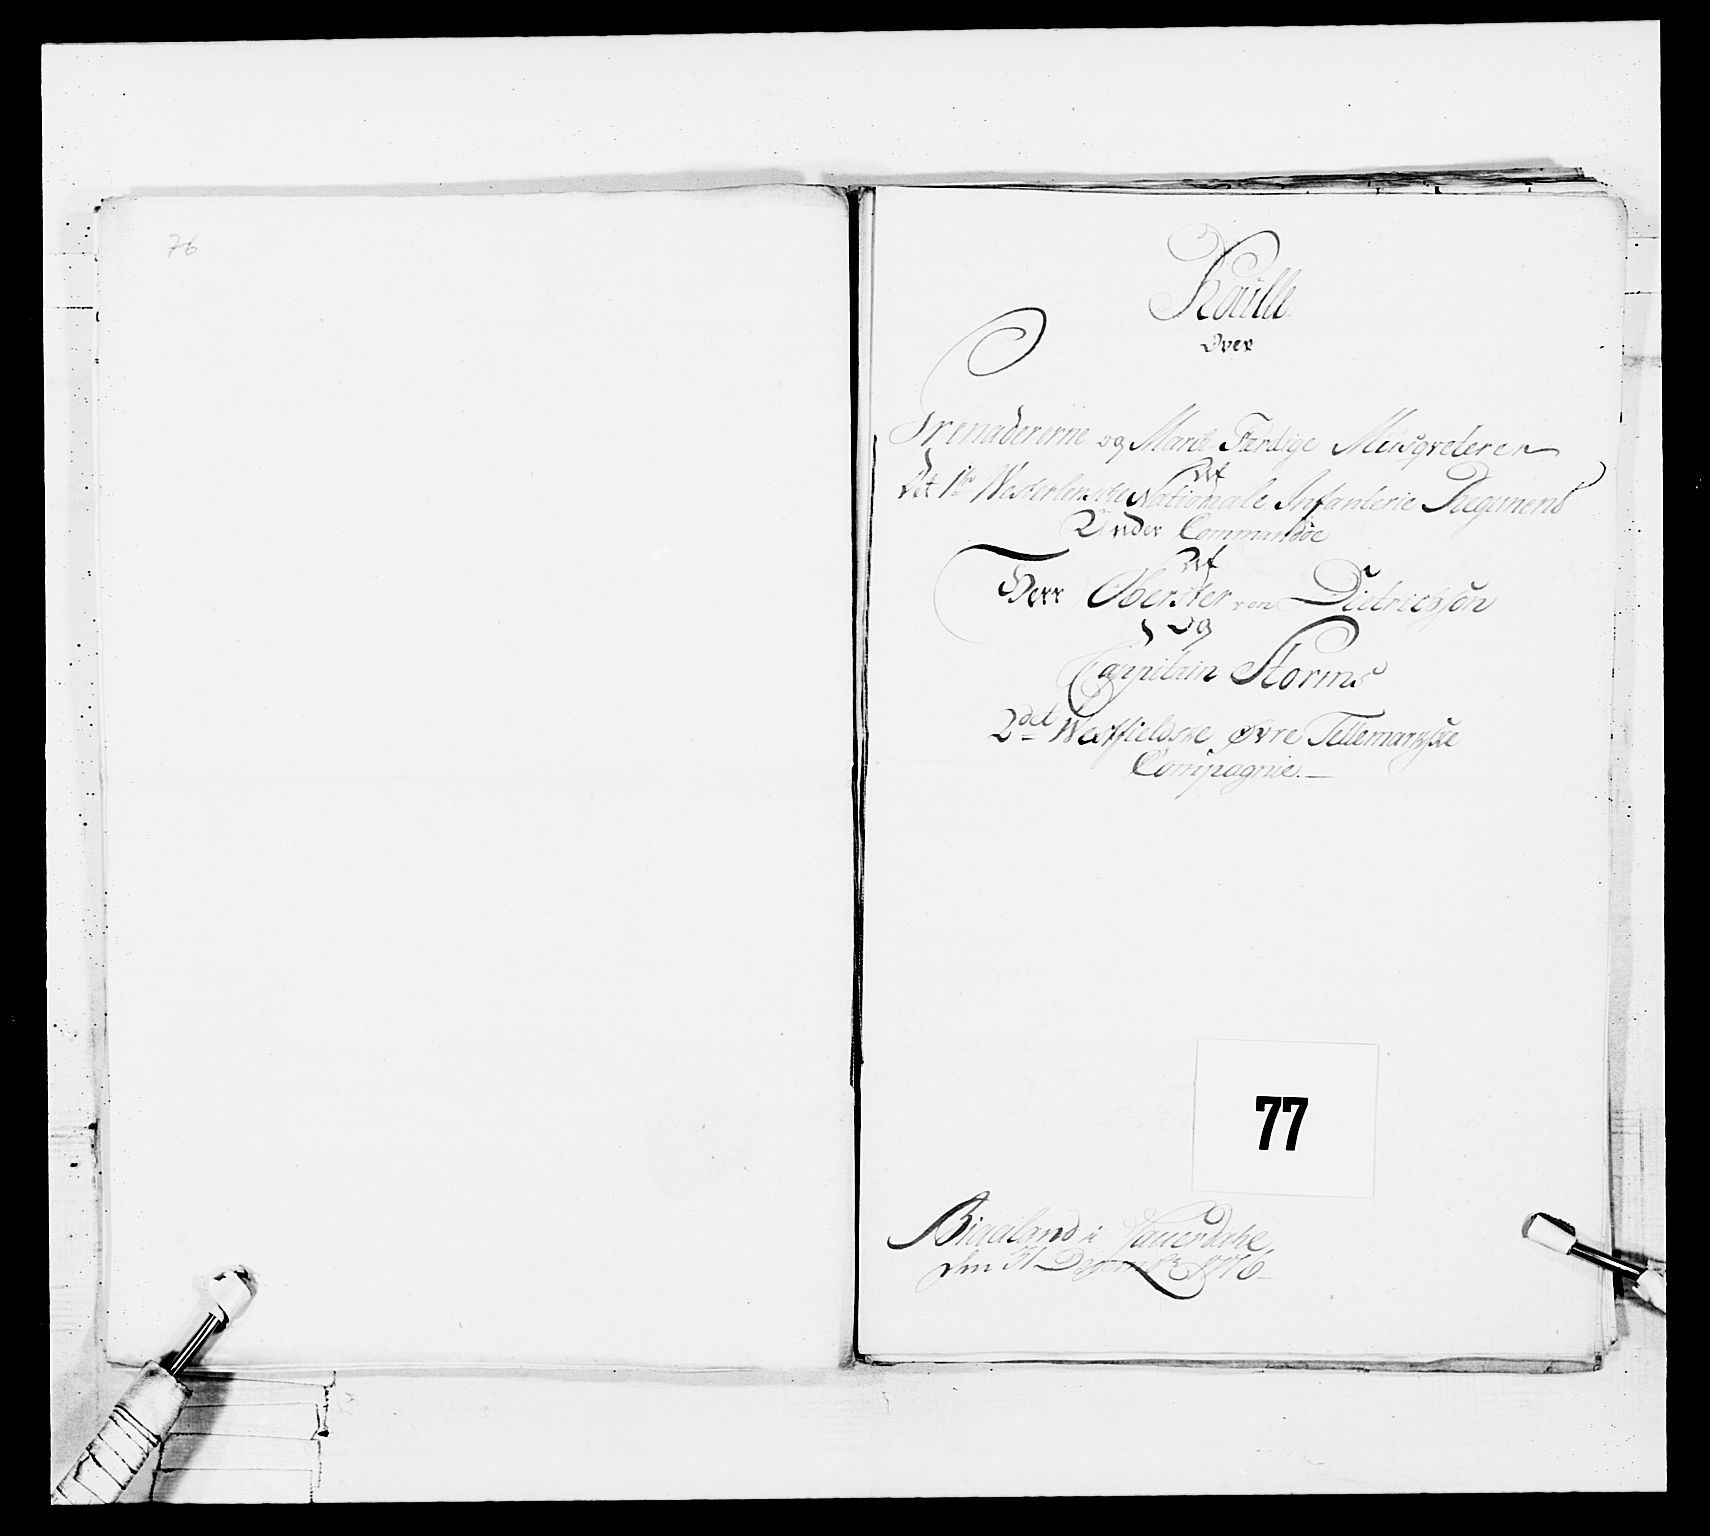 76
Roulle
Over
Grenadererne og March Færdige Musqveterer
Af
Det 1te Westerlenske Nationale Infanterie Regiment
Under Commandoe
Af
Herr Oberster von Dietrichson
og
Cappitain Storms
2det Westfieldske Øvre Tellemarkske
Compagnie.
77
i
den 31 Decembr 1776